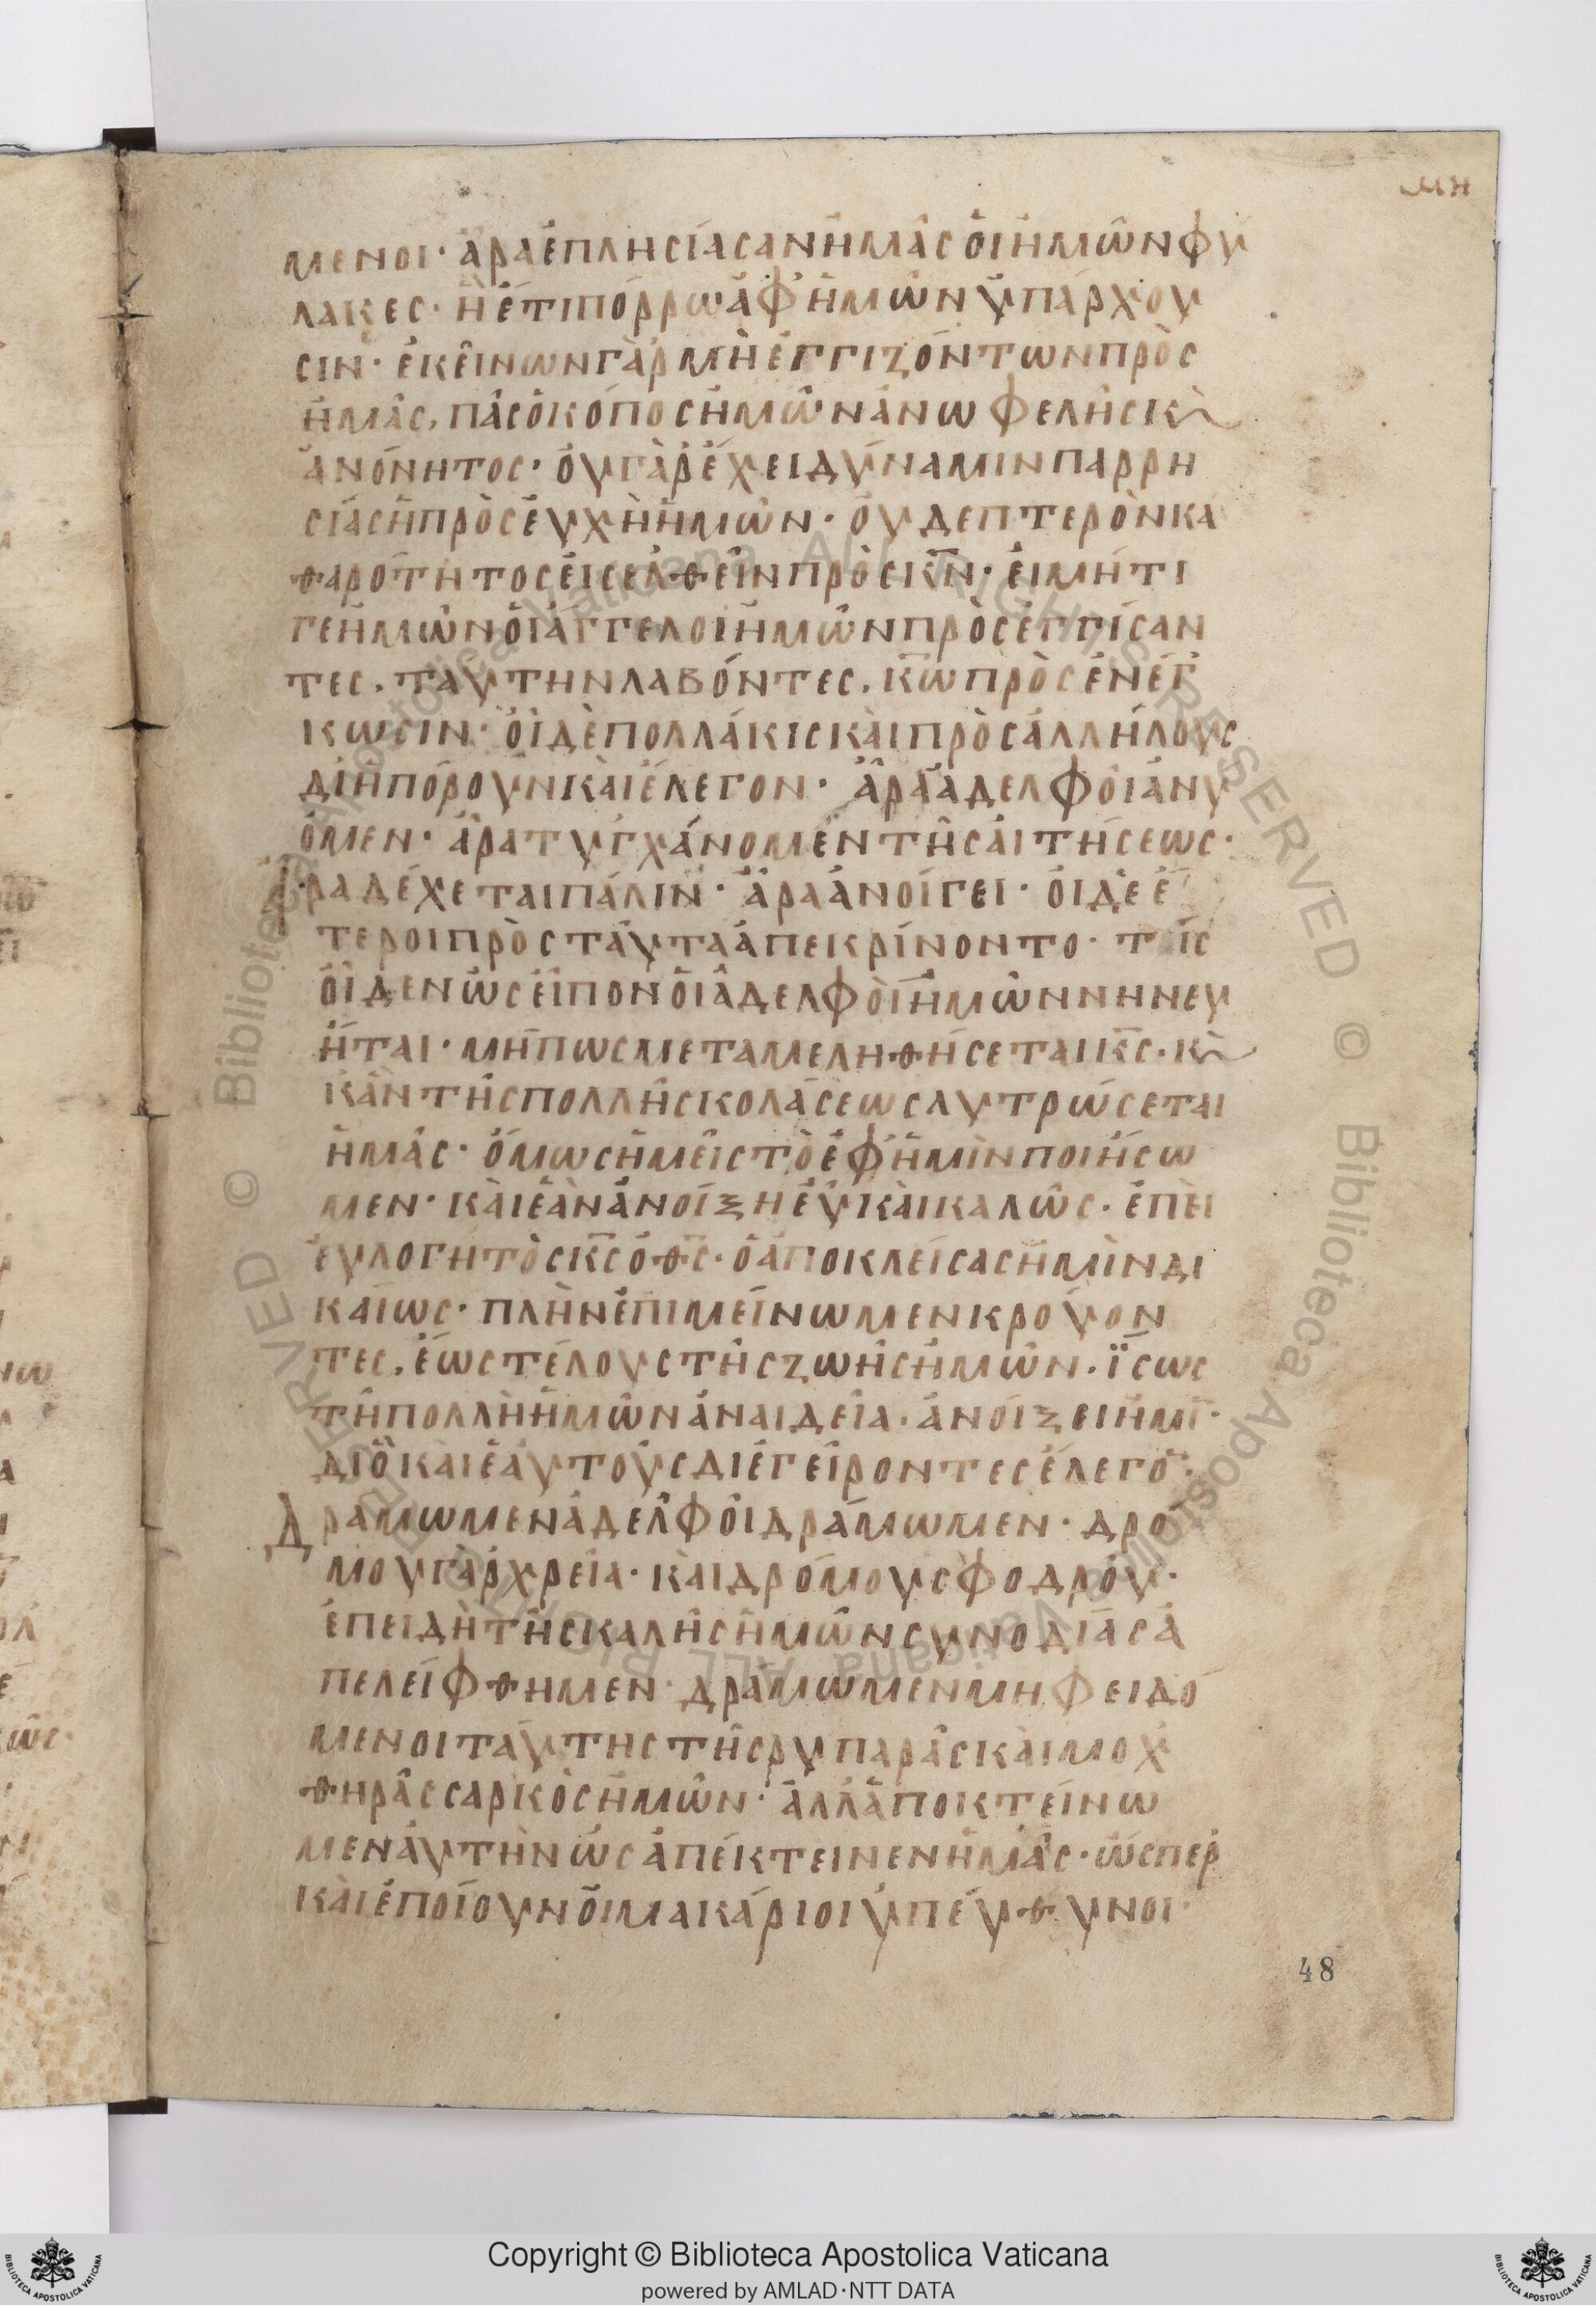 μη
μενοι· ἆρα ἐπλησίασαν ἡμᾶς οἱ ἡμῶν φύ
λακες· ἢ ἔτι πόρρω ἀφ' ἡμῶν ὑπάρχου
σιν· ἐκείνων γὰρ μὴ ἐγγιζόντων πρὸς
ἡμᾶς, πᾶς ὁ κόπος ἡμῶν ἀνωφελὴς κ̀
ἀνόνητος· οὐ γὰρ ἔχει δύναμιν παρρη
σίας ἡ προσευχὴ ἡμῶν· οὐδὲ πτερὸν κα
θαρότητος εἰσελθεῖν πρὸς κ̅ν̅· εἰ μή τι
γε ἡμῶν οἱ ἄγγελοι ἡμῶν προσεγγίσαν
τες, ταύτην λαβόντες, κ̅ω̅ προσενέγ
κωσιν· οἱ δὲ πολλάκις καὶ πρὸς ἀλλήλους
διηπόρουν καὶ ἔλεγον· ἆρα ἀδελφοὶ ἀνύ
ομεν· ἆρα τυγχάνομεν τῆς αἰτήσεως·
ἆρα δέχεται πάλιν· ἆρα ἀνοίγει· οἱ δὲ ἕ
τεροι πρὸς ταῦτα ἀπεκρίνοντο· τίς
οἶδεν ὡς εἶπον οἱ ἀδελφοὶ ἡμῶν νηνευ
ῆται· μήπως μεταμεληθήσεται κ̅ς̅· κ̀
κἂν τῆς πολλῆς κολάσεως λυτρώσεται
ἡμᾶς· ὅμως ἡμεῖς τὸ ἐφ' ἡμῖν ποιήσω
μεν· καὶ ἐὰν ἀνοίξη εὖ καὶ καλῶς· ἐπεὶ
εὐλογητὸς κ̅ς̅ ὁ θ̅ς̅· ὁ ἀποκλείσας ἡμῖν δι
καίως· πλὴν ἐπιμείνωμεν κρούον
τες, ἕως τέλους τῆς ζωῆς ἡμῶν· ἴσως
τῆ πολλῆ ἡμῶν ἀναιδεία, ἀνοίξει ἡμῖ·
διὸ καὶ ἑαυτοὺς διεγείροντες ἔλεγο̅·
Δράμωμεν ἀδελφοὶ δράμωμεν· δρό
μου γὰρ χρεία· καὶ δρόμου σφοδροῦ·
ἐπειδὴ τῆς καλῆς ἡμῶν συνοδίας ἀ
πελείφθημεν· δράμωμεν μὴ φειδό
μενοι ταύτης τῆς ρυπαρᾶς καὶ μοχ
θηρᾶς σαρκὸς ἡμῶν· ἀλλ' ἀποκτείνω
μεν αὐτὴν ὡς ἀπέκτεινεν ἡμᾶς· ὥσπερ
καὶ ἐποίουν οἱ μακάριοι ὑπεύθυνοι·
48
Copyright © Biblioteca Apostolica Vaticana
powered by AMLAD·NTT DATA